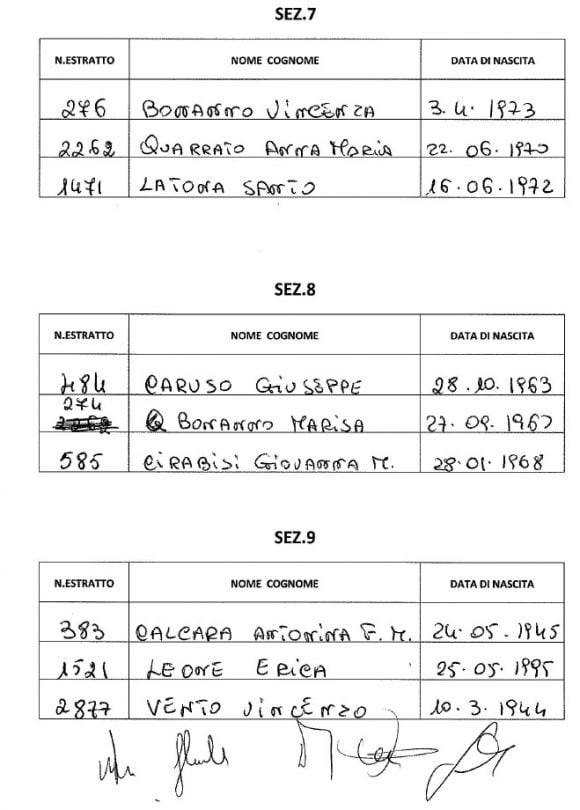 SEZ.7
N.ESTRATTO NOME COGNOME DATA DI NASCITA
276 BONANNO VINCENZA 3. 4. 1973
2262 QUARRATO ANNA MARIA 22. 06. 1970
1471 LATONA SANTO 16.06.1972
SEZ.8
N.ESTRATTO NOME COGNOME DATA DI NASCITA
484 CARUSO GIUSEPPE 28.10.1963
274 BONANNO MARISA 27.09.1967
585 CIRABISI GIOVANNA M. 28.01.1968
SEZ.9
N.ESTRATTO NOME COGNOME DATA DI NASCITA
383 CALCARA ANTONINA F. M. 24.05.1945
1521 LEONE ERICA 25.05.1995
2877 VENTO VINCENZO 10.3.1944